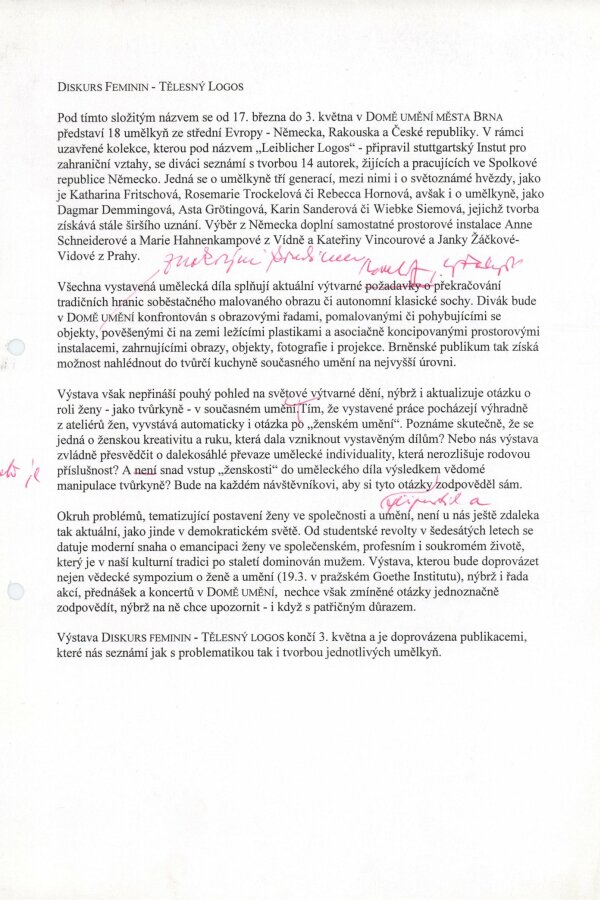 DISKURS FEMININ - TĚLESNÝ LOGOS
Pod tímto složitým názvem se od 17. března do 3. května v DOMĚ UMĚNÍ MĚSTA BRNA
představí 18 umělkyň ze střední Evropy - Německa, Rakouska a České republiky. V rámci
uzavřené kolekce, kterou pod názvem „Leiblicher Logos“ - připravil stuttgartský Instut pro
zahraniční vztahy, se diváci seznámí s tvorbou 14 autorek, žijících a pracujících ve Spolkové
republice Německo. Jedná se o umělkyně tří generací, mezi nimi i o světoznámé hvězdy, jako
je Katharina Fritschová, Rosemarie Trockelová či Rebecca Hornová, avšak i o umělkyně, jako
Dagmar Demmingová, Asta Grötingová, Karin Sanderová či Wiebke Siemová, jejichž tvorba
získává stále širšího uznání. Výběr z Německa doplní samostatné prostorové instalace Anne
Schneiderové a Marie Hahnenkampové z Vídně a Kateřiny Vincourové a Janky Žáčkové-
Vidové z Prahy.
Všechna vystavená umělecká díla splňují aktuální výtvarné požadavky o překračování
tradičních hranic soběstačného malovaného obrazu či autonomní klasické sochy. Divák bude
v DOMĚ UMĚNÍ konfrontován s obrazovými řadami, pomalovanými či pohybujícími se
objekty, pověšenými či na zemi ležícími plastikami a asociačně koncipovanými prostorovými
instalacemi, zahrnujícími obrazy, objekty, fotografie i projekce. Brněnské publikum tak získá
možnost nahlédnout do tvůrčí kuchyně současného umění na nejvyšší úrovni.
Výstava však nepřináší pouhý pohled na světové výtvarné dění, nýbrž i aktualizuje otázku o
roli ženy - jako tvůrkyně - v současném umění.Tím, že vystavené práce pocházejí výhradně
z ateliérů žen, vyvstává automaticky i otázka po „ženském umění“. Poznáme skutečně, že se
jedná o ženskou kreativitu a ruku, která dala vzniknout vystavěným dílům? Nebo nás výstava
zvládne přesvědčit o dalekosáhlé převaze umělecké individuality, která nerozlišuje rodovou
příslušnost? A není snad vstup „ženskosti“ do uměleckého díla výsledkem vědomé
je
manipulace tvůrkyně? Bude na každém návštěvníkovi, aby si tyto otázky zodpověděl sám.
Okruh problémů, tematizující postavení ženy ve společnosti a umění, není u nás ještě zdaleka
tak aktuální, jako jinde v demokratickém světě. Od studentské revolty v šedesátých letech se
datuje moderní snaha o emancipaci ženy ve společenském, profesním i soukromém životě,
který je v naší kulturní tradici po staletí dominován mužem. Výstava, kterou bude doprovázet
nejen vědecké sympozium o ženě a umění (19.3. v pražském Goethe Institutu), nýbrž i řada
akcí, přednášek a koncertů v DOMĚ UMĚNÍ, nechce však zmíněné otázky jednoznačně
zodpovědít, nýbrž na ně chce upozornit - i když s patřičným důrazem.
Výstava DISKURS FEMININ - TĚLESNÝ LOGOS končí 3. května a je doprovázena publikacemi,
které nás seznámí jak s problematikou tak i tvorbou jednotlivých umělkyň.